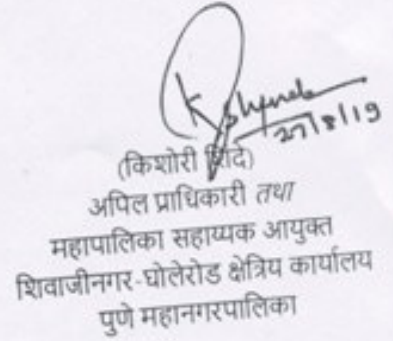 K Shinde
27/8/19
(किशोरी शिंदे)
अपिल प्राधिकारी तथा
महापालिका सहाय्यक आयुक्त
शिवाजीनगर-घोलेरोड क्षेत्रिय कार्यालय
पुणे महानगरपालिका